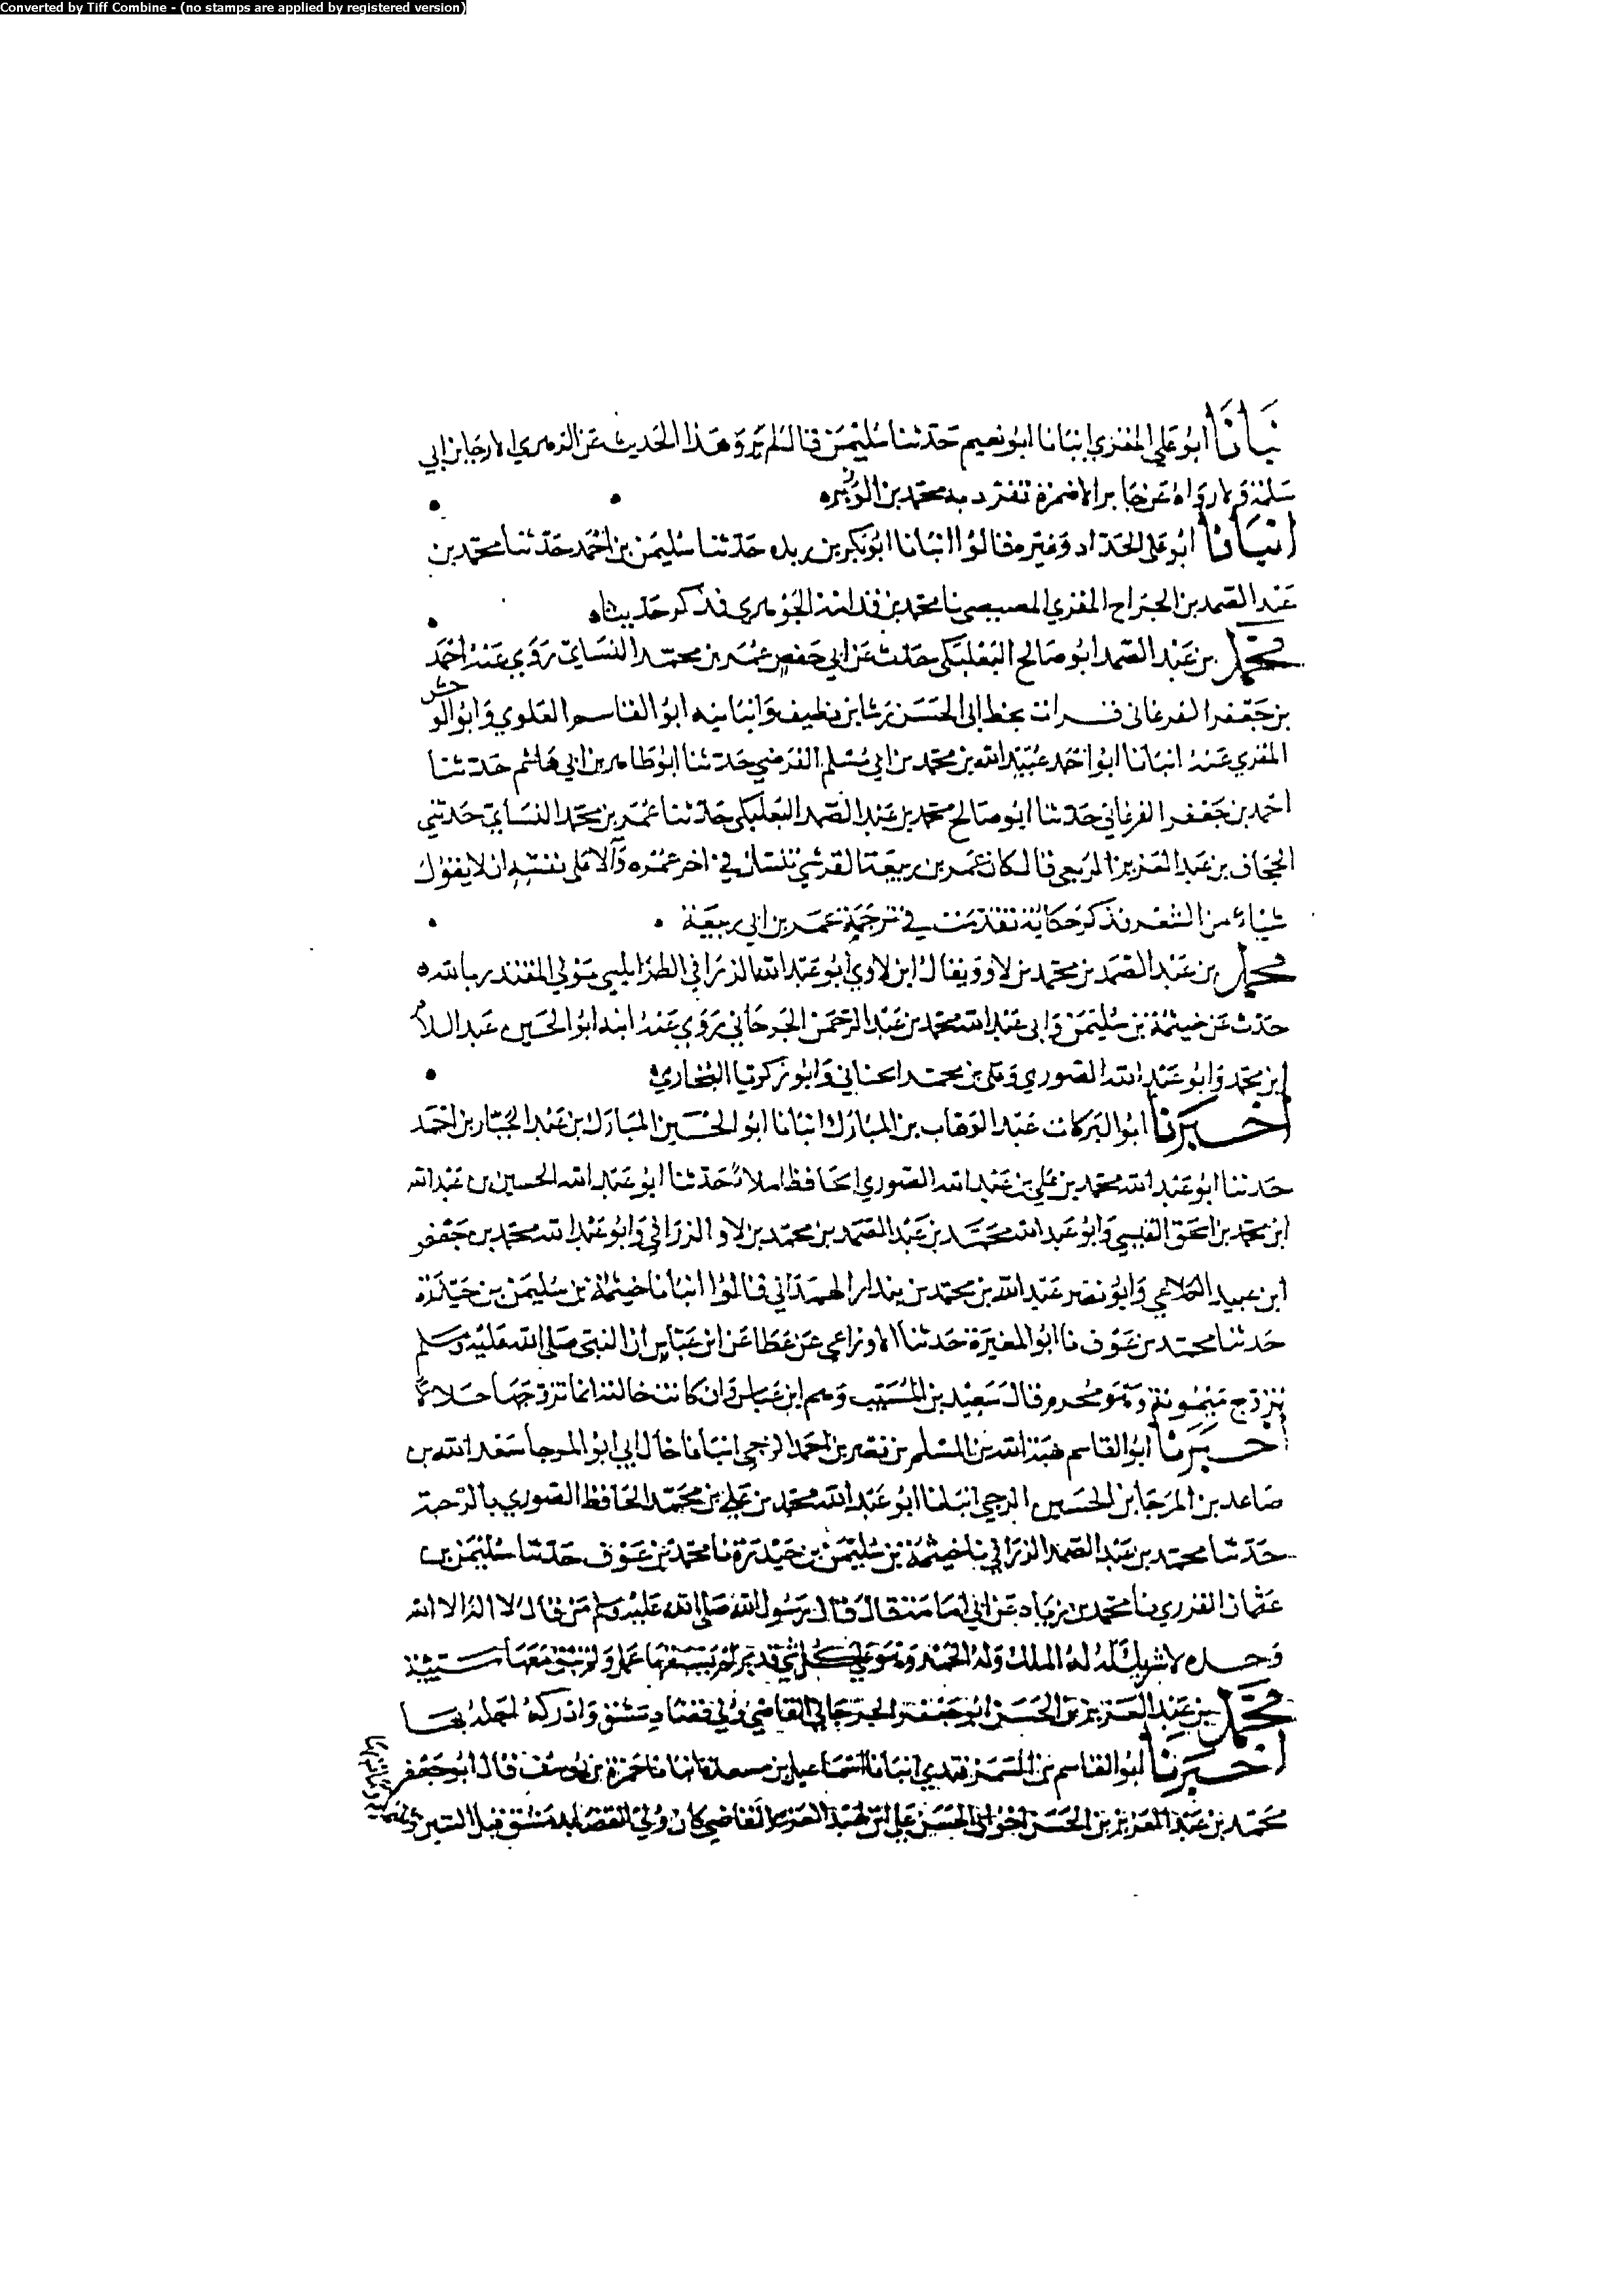 Converted by Tiff Combine - (no stamps are applied by registered version)
نبأنا أبو علي المقري انبانا ابو نعيم حدثنا سليمن قال لم يرو هذا الحديث عن الزهري الا رجا بن ابي
سلمة ولا رواه عن رجا بر الا ضمرة تفرد به محمد بن الوزير
انبانا ابو علي الحداد وغيره قالوا انبانا ابو بكر بن ريده حدثنا سليمن بن احمد حدثنا محمد بن
عبد الصمد بن الجراح المقري المصيصي نا محمد بن قدامة الجوهري فذكر حديثاه
محمد بن عبد الصمد ابو صالح البعلبكي حدث عن ابي حفص عمر بن محمد النساي روي عنه احمد
بن جعفر الفرغاني قرات بخط ابي الحسن رشا بن نظيف وانبانيه ابو القاسم العلوي وابو الوحش
المقري عنه انبانا ابو احمد عبيد الله بن محمد بن ابي مسلم الفرضي حدثنا ابو طاهر بن ابي هاشم حدثنا
احمد بن جعفر الفرغاني حدثنا ابو صالح محمد بن عبد الصمد البعلبكي حدثنا عمر بن محمد النساي حدثني
الجحاف بن عبد العزيز الربعي قال كان عمر بن ربيعة القرشي تنسك في اخر عمره وآلا على نفسه ان لا يقول
شياء من الشعر فذكر حكاية تقدمت في ترجمة عمر بن ابي ربيعة
محمد بن عبد الصمد بن محمد بن لاو ويقال ابن لاوي ابو عبد الله الزرافي الطرابلسي مولي المقتدر بالله
حدث عن خيثمة بن سليمن وابي عبد الله محمد بن عبد الرحمن الجرجاني روي عنه ابنه ابو الحسين عبد السلام
ابن محمد وابو عبد الله الصوري وعلي بن محمد الحناني وابو زكريا البخاري
اخبرنا ابو البركات عبد الوهاب بن المبارك انبانا ابو الحسين المبارك بن عبد الجبار بن احمد
حدثنا ابو عبد الله محمد بن علي بن عبد الله الصوري الحافظ املاء حدثنا ابو عبد الله الحسين بن عبد الله
ابن محمد بن اسحق القيسي وابو عبد الله محمد بن عبد الصمد بن محمد بن لاو الزرافي وابو عبد الله محمد بن جعفر
ابن عبيد الكلاعي وابو نصر عبد الله بن محمد بن بندار الهمداني قالوا انبانا خيثمة بن سليمن بن حيدرة
حدثنا محمد بن عوف نا ابو المغيرة حدثنا الاوزاعي عن عطا عن ابن عباس ان النبي صلى الله عليه وسلم
تزوج ميمونة وهو محرم قال سعيد بن المسيب وهم ابن عباس وان كانت خالته انما تزوجها حلالا
اخبرنا ابو القاسم هبة الله بن المسلم بن نصر بن احمد الرحبي انبانا خال ابي ابو المرجا سعد الله بن
صاعد بن المرجا بن الحسين الرحبي انبانا ابو عبد الله محمد بن علي بن محمد الحافظ الصوري بالرحبة
حدثنا محمد بن عبد الصمد الزرافي نا خيثمة بن سليمن بن حيدرة نا محمد بن عوف حدثنا سليمن بن
عثمان الفزري نا محمد بن زياد عن ابي امامة قال قال رسول الله صلى الله عليه وسلم من قال لا اله الا الله
وحده لا شريك له له الملك وله الحمد وهو علي كل شي قدير لم يسبقها عمل ولم تبق معها سيئة
محمد بن عبد العزيز بن الحسن ابو جعفر الجرجاني القاضي ولي قضا دمشق وادركه اجله بها
اخبرنا ابو القاسم بن السمرقندي انبانا اسماعيل بن مسعدة انبانا حمزة بن يوسف قال ابو جعفر
محمد بن عبد العزيز بن الحسن اخو ابي الحسن علي بن عبد العزيز القاضي كان ولي القضا بدمشق قبل